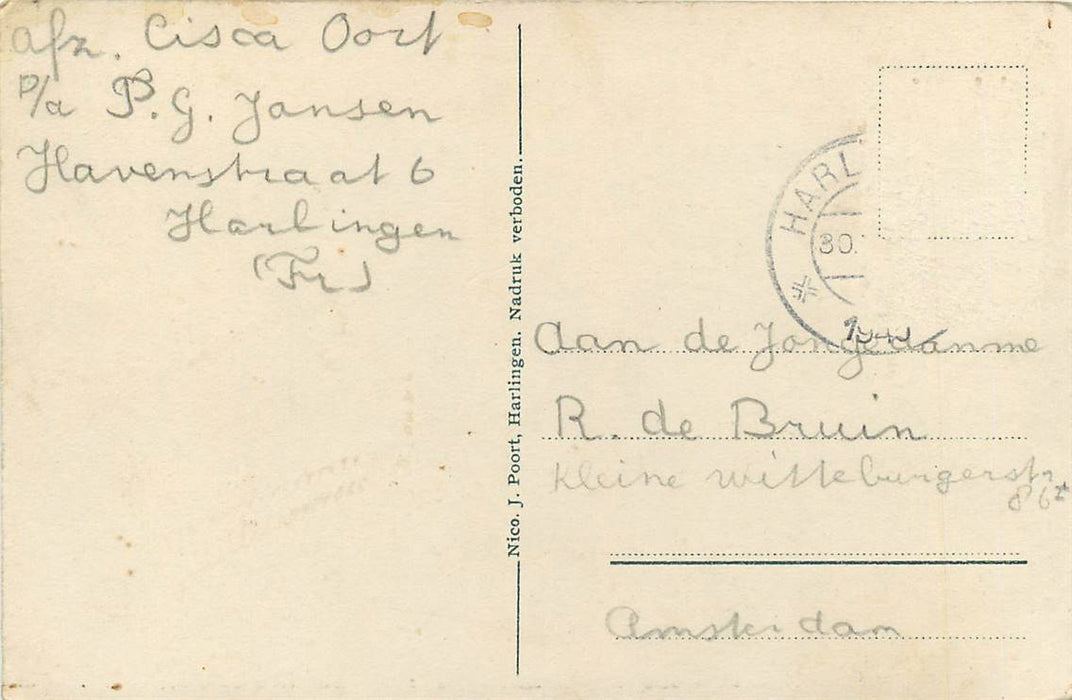 afz. Cisca Oort
P/a P.G. Jansen
Havenstraat 6
Harlingen
(Fr)
Nico. J. Poort, Harlingen. Nadruk verboden.
HARL
30.
Aan de Jongedamme
R. de Bruin
Kleine Witteburgerstr
86
Amsterdam